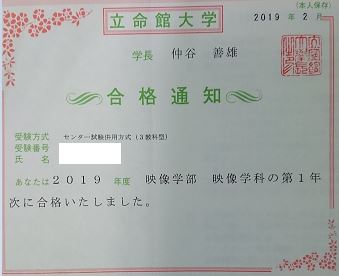 (本人保存)
立命館大学
2019 年 2月
学長 仲谷 善雄
合格通知
受験方式 センター試験併用方式（３教科型）
受験番号
氏名
あなたは 2019 年度 映像学部 映像学科の第1年
次に合格いたしました。